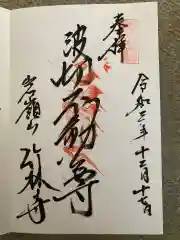 奉拝
令和三年十二月十七日
波切不動尊
岩嶺山